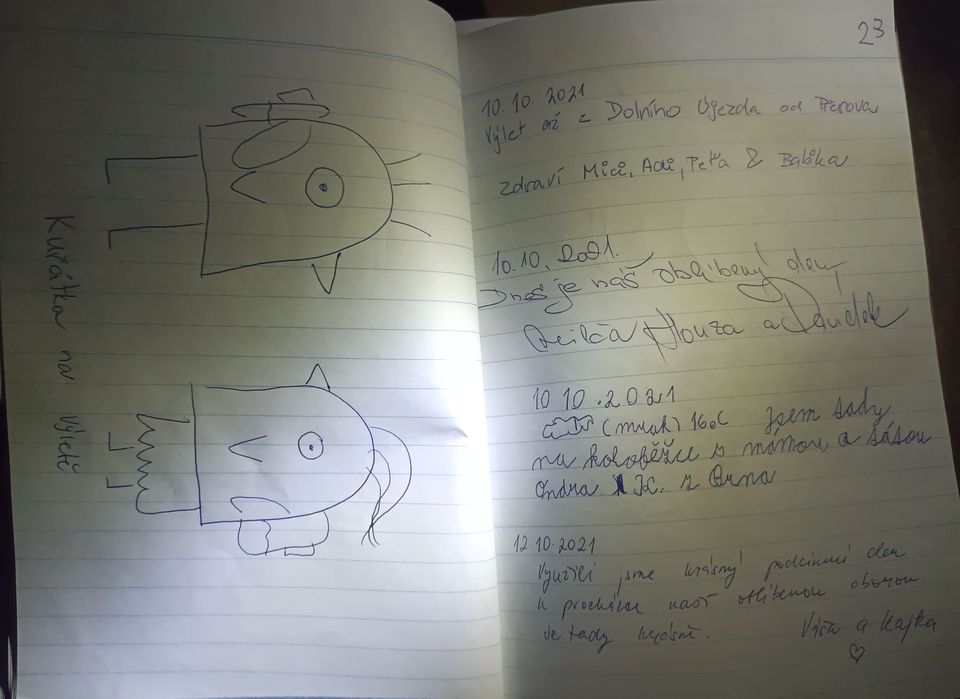 Kuřátka na výletě
23
10.10.2021
Výlet až z Dolního Újezda od Přerova
zdraví Mici, Adi, Peťa & Babika
10.10.2021.
Dnes je náš oblíbený den,
Honza a
10 10.2021
(mrak) 16°C jsem tady
na koloběžce s mámou a tátou
Ondra K. z Brna
12.10.2021
Využili jsme krásný podzimní den
k procházce naší oblíbenou oborou.
Je tady krásně. Víťa a Kajka
♡